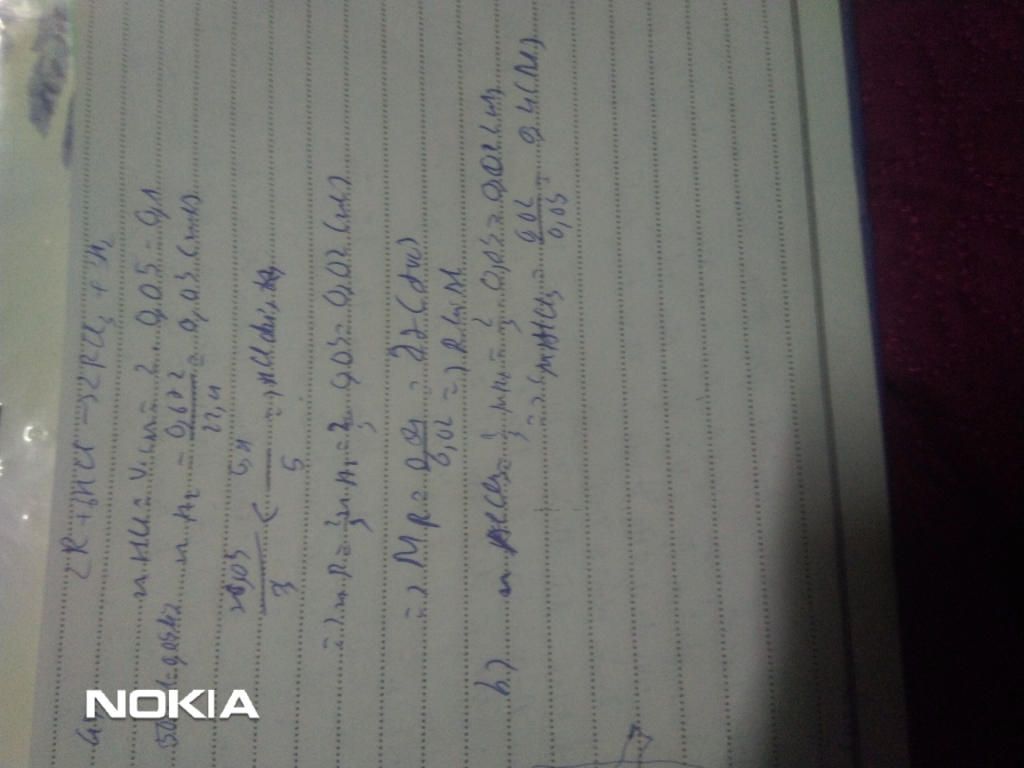 a.) 2R + 6HCl → 2RCl3 + 3H2
50ml = 0,05l n HCl = V.CM = 2 . 0,05 = 0,1
n H2 = 0,672 / 22,4 = 0,03 (mol)
0,03 / 3 < 0,1 /
=> n R = 2/3 n H2 = 2/3 . 0,03 = 0,02 (mol)
=> M R = / 0,02 = 27 (dvc) => R là Al
b.) n AlCl3 = 2/3 nH2 = 2/3 . 0,03 = 0,02 (mol)
=> CM AlCl3 = 0,02 / 0,05 = 0,4 (M)
NOKIA